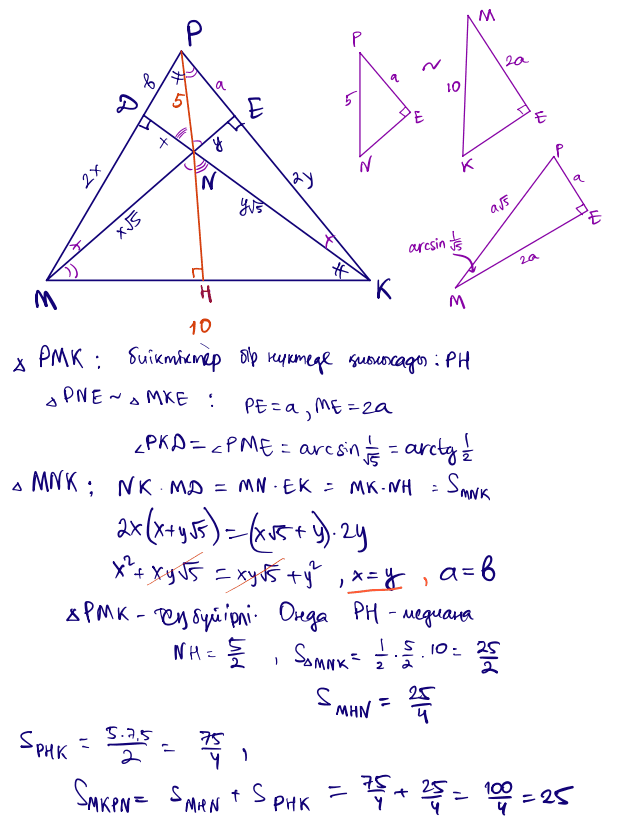 P
M
P
b
a
a
2a
5
~
10
5
D
E
E
E
x
y
N
K
P
2x
N
2y
a
a√5
x√5
y√5
E
arcsin 1/√5
2a
M
H
K
M
10
△ PMK : биіктіктер бір нүктеде қиылысады : PH
△ PNE ~ △ MKE : PE = a , ME = 2a
∠PKD = ∠PME = arcsin 1/√5 = arctg 1/2
△ MNK ; NK · MD = MN · EK = MK · NH = S_MNK
2x(x+y√5) = (x√5+y)·2y
x² + xy√5 = xy√5 + y² , x = y , a = b
△PMK - тең бүйірлі. Онда PH - медиана
NH = 5/2 , S_△MNK = 1/2 · 5/2 · 10 = 25/2
S_MHN = 25/4
S_PHK = 5·7,5/2 = 75/4 ,
S_MKPN = S_MHN + S_PHK = 75/4 + 25/4 = 100/4 = 25